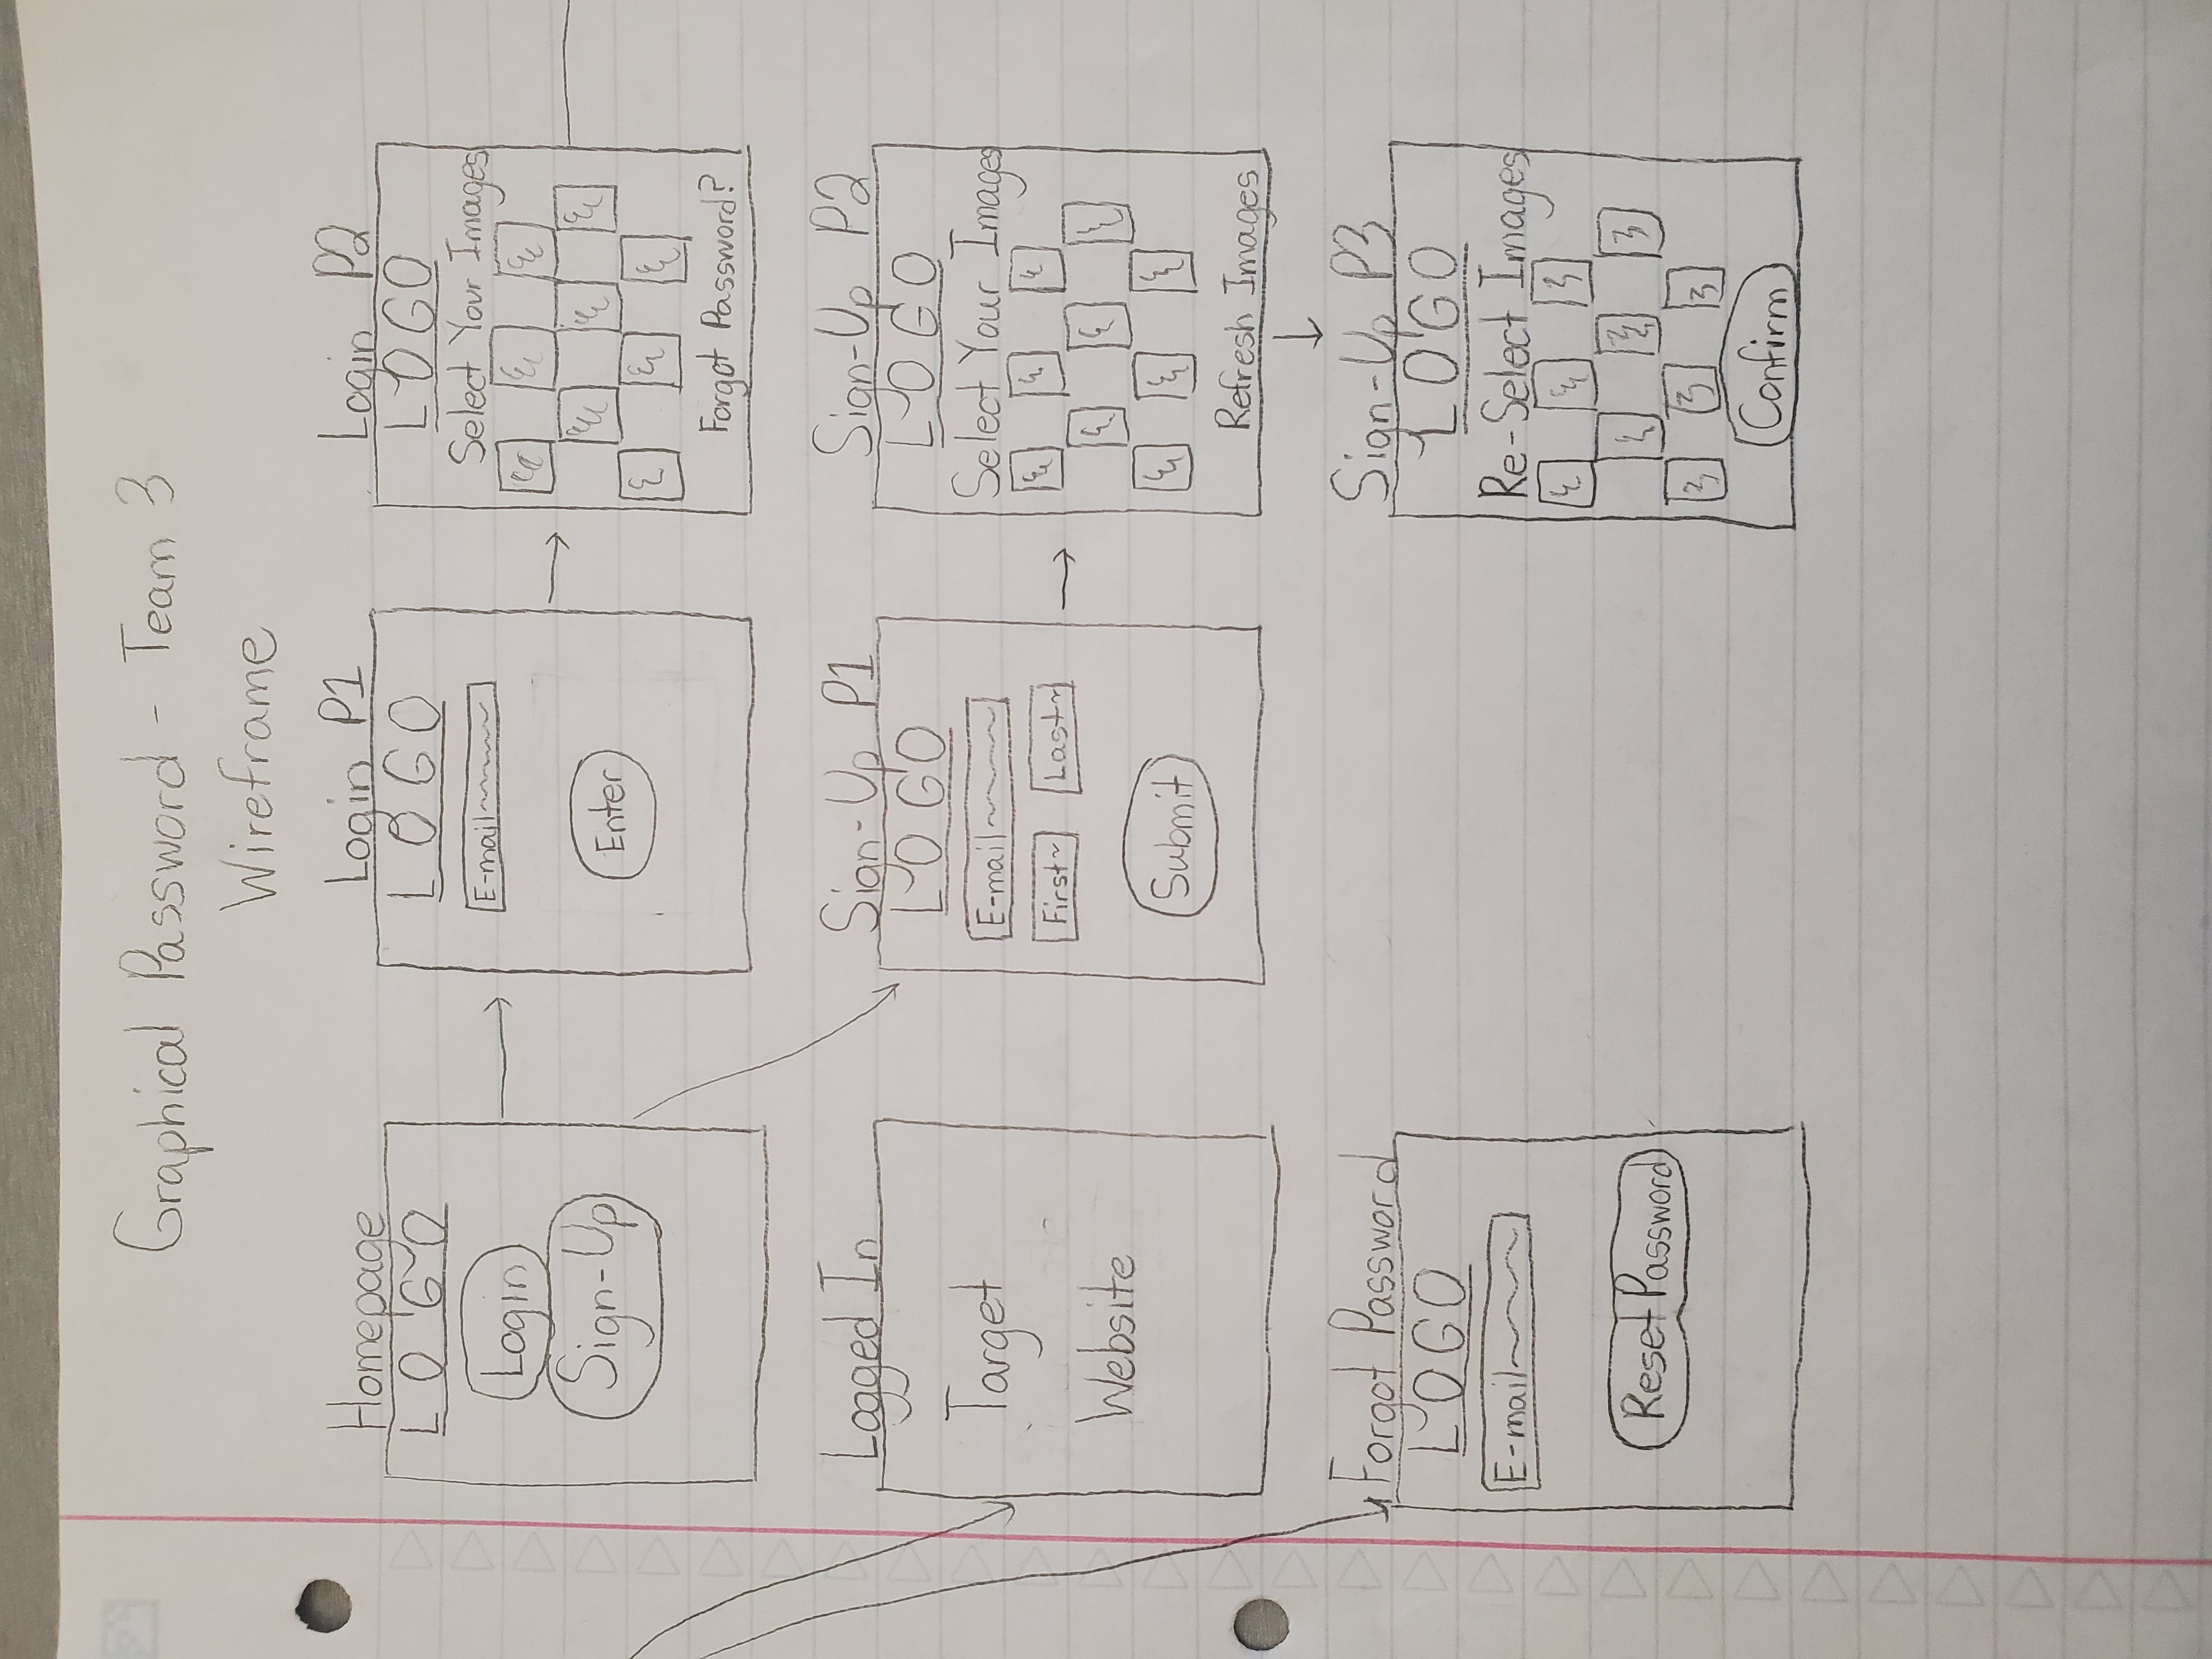 Graphical Password - Team 3
Wireframe
Homepage
LOGO
Login
Sign-Up
Login P1
LOGO
E-mail
Enter
Login P2
LOGO
Select Your Images
Forgot Password?
Logged In
Target
Website
Sign-Up P1
LOGO
E-mail
First
Last
Submit
Sign-Up P2
LOGO
Select Your Images
Refresh Images
Forgot Password
LOGO
E-mail
Reset Password
Sign-Up P3
LOGO
Re-Select Images
Confirm